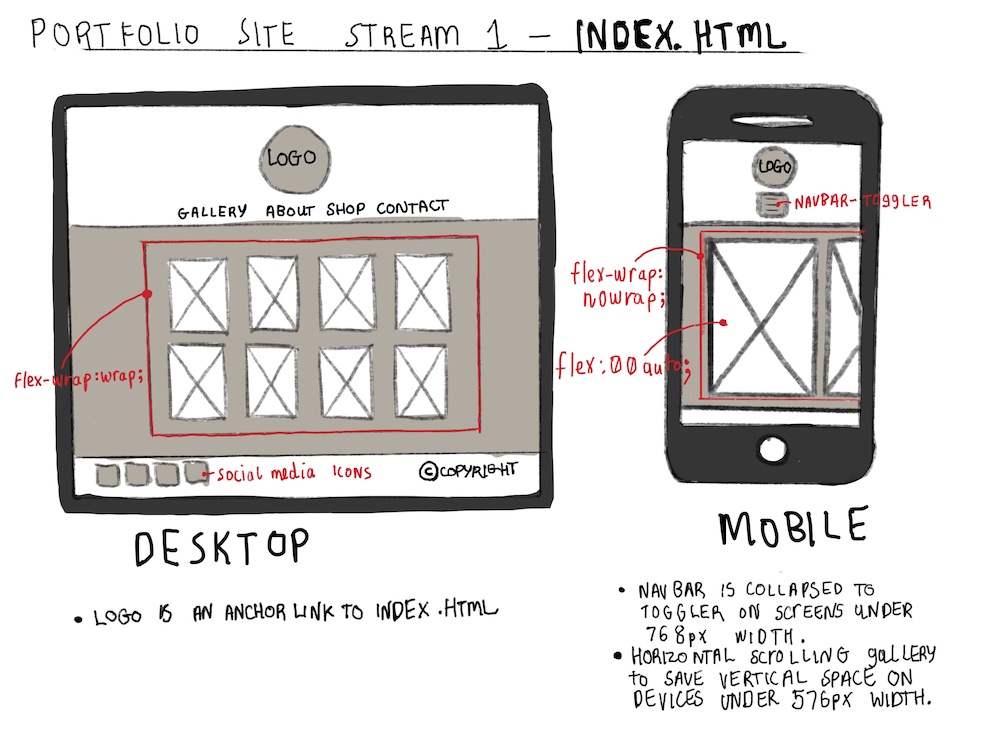 PORTFOLIO SITE STREAM 1 - INDEX.HTML
LOGO
GALLERY ABOUT SHOP CONTACT
flex-wrap:wrap;
social media ICONS
©COPYRIGHT
DESKTOP
• LOGO IS AN ANCHOR LINK TO INDEX.HTML
LOGO
NAVBAR-TOGGLER
flex-wrap:
nowrap;
flex:00 auto;
MOBILE
• NAVBAR IS COLLAPSED TO
TOGGLER ON SCREENS UNDER
768px WIDTH.
• HORIZONTAL SCROLLING gallery
to SAVE VERTICAL SPACE ON
DEVICES UNDER 576PX WIDTH.